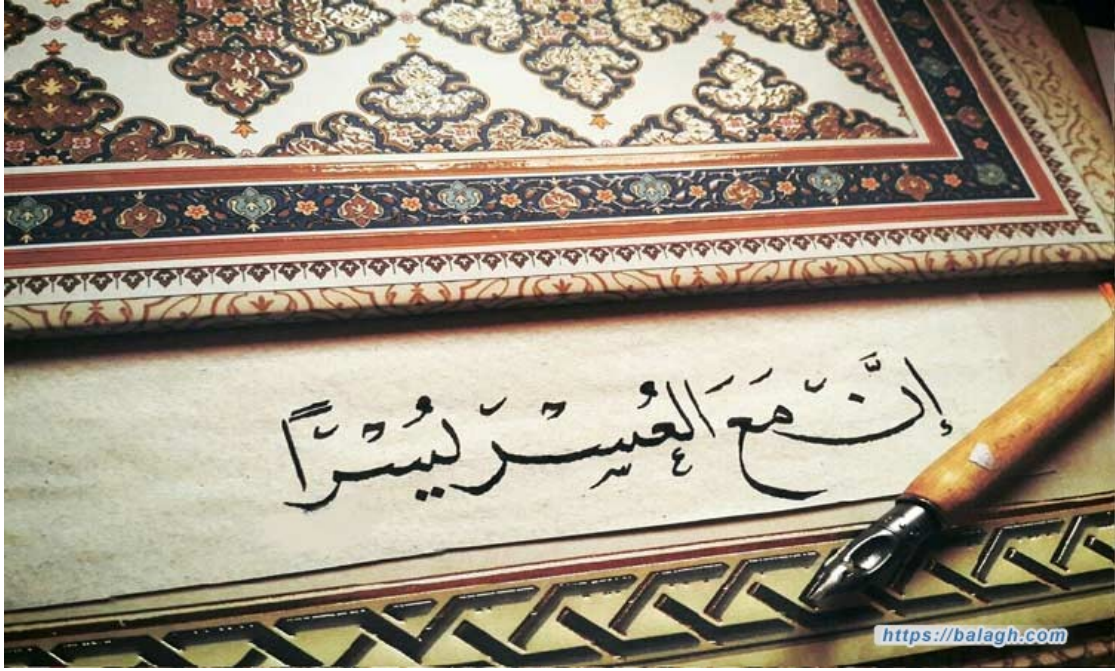 إِنَّ مَعَ العُسْرِ يُسْرًا
https://balagh.com